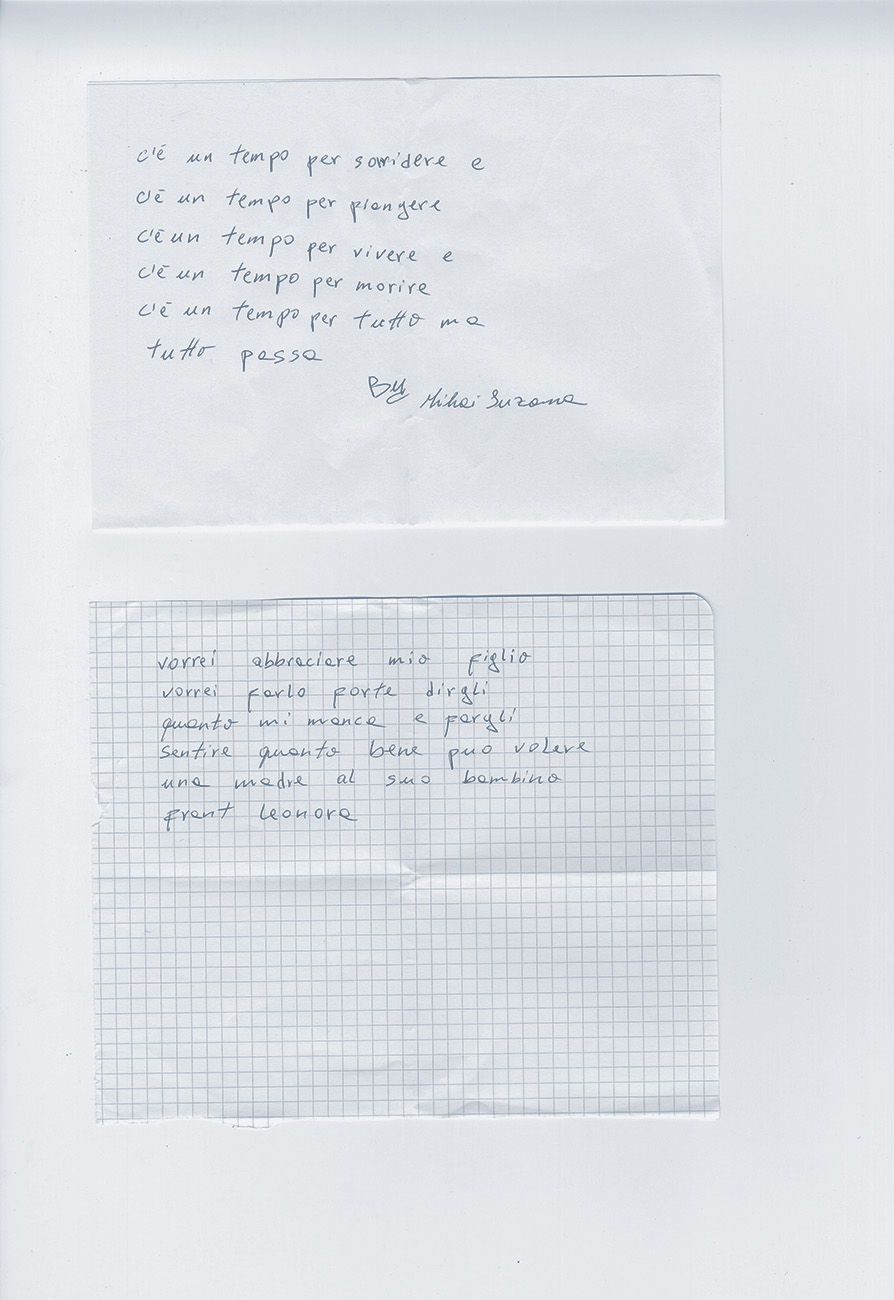 c'è un tempo per sorridere e
c'è un tempo per piangere
c'è un tempo per vivere e
c'è un tempo per morire
c'è un tempo per tutto ma
tutto passa
By Mihai Suzana
vorrei abbraciare mio figlio
vorrei farlo forte dirgli
quanto mi manca e fargli
sentire quanto bene può volere
una madre al suo bambino
frant Leonora